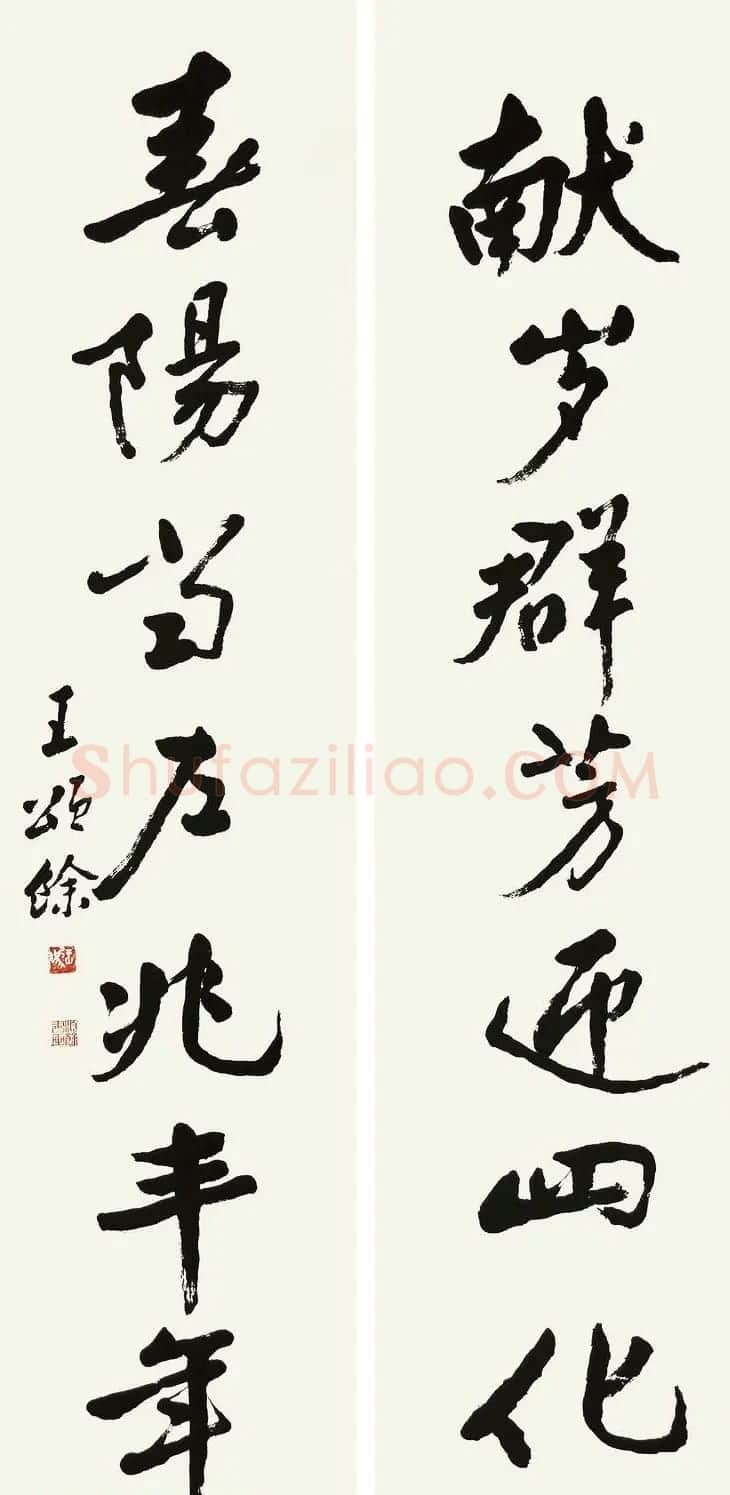 献岁群芳迎四化
春陽当左兆丰年
王颂餘
Shufaziliao.COM